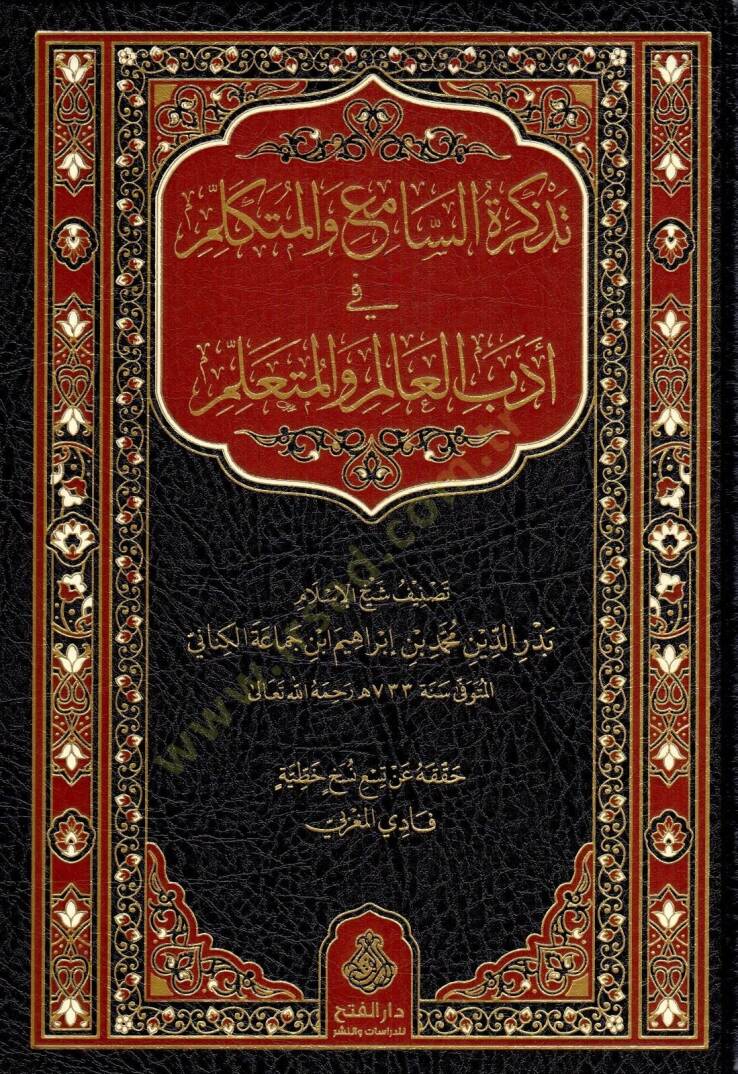 تَذْكِرَةُ السَّامِعِ وَالمُتَكَلِّمِ
في
أَدَبِ العَالِمِ وَالمُتَعَلِّمِ
تَصْنِيفُ شَيْخِ الإِسْلَامِ
بَدْرِ الدِّينِ مُحَمَّدِ بْنِ إِبْرَاهِيمَ ابْنِ جَمَاعَةَ الكِنَانِيِّ
المُتَوَفَّى سَنَةَ ٧٣٣هـ رَحِمَهُ اللهُ تَعَالَى
حَقَّقَهُ عَنْ تِسْعِ نُسَخٍ خَطِّيَّةٍ
فَادِي المَغْرِبِيّ
دار الفتح
للدراسات والنشر